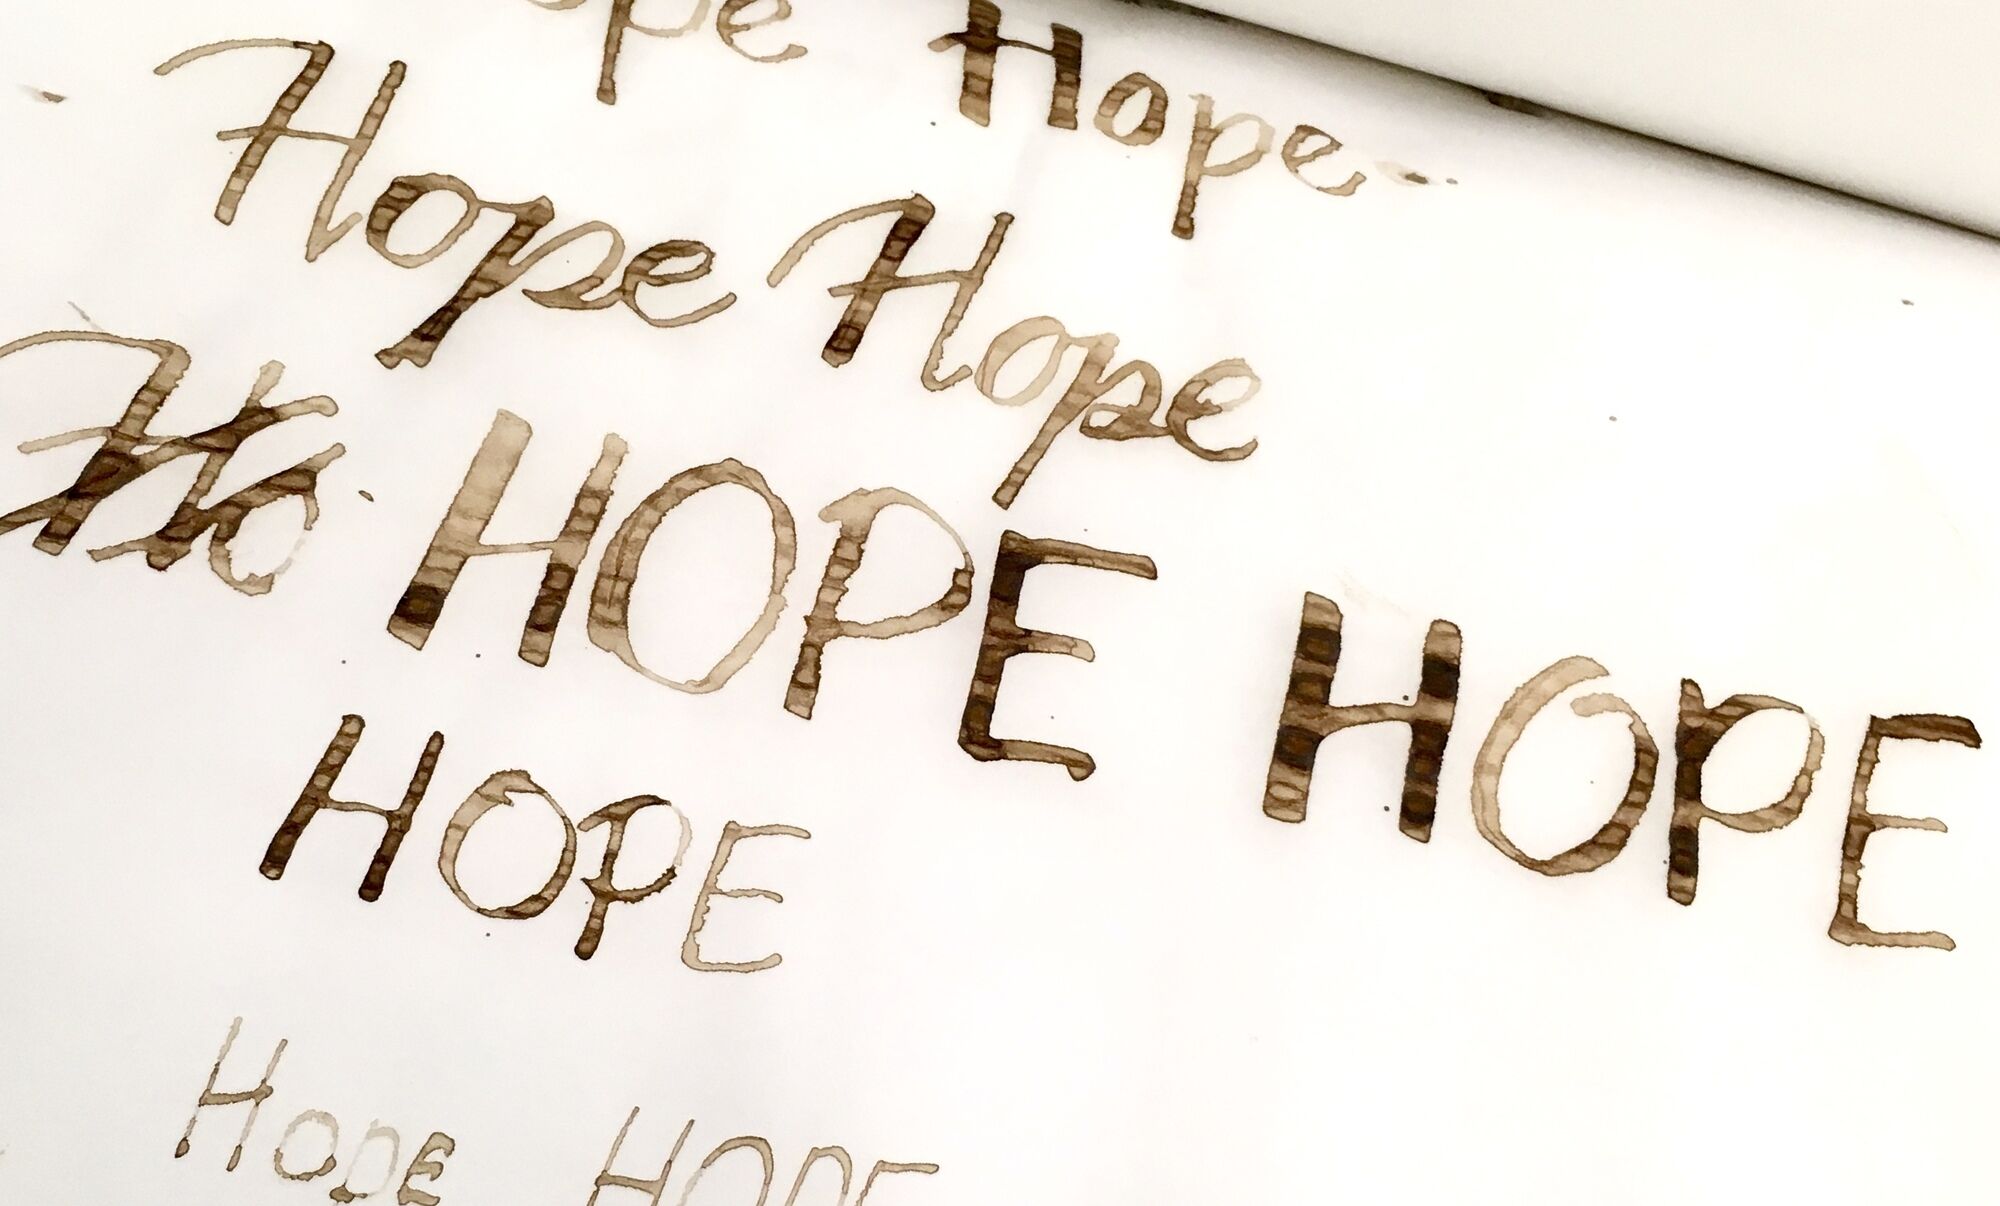 ope Hope
Hope Hope
Ho HOPE HOPE
HOPE
HOPE HOPE